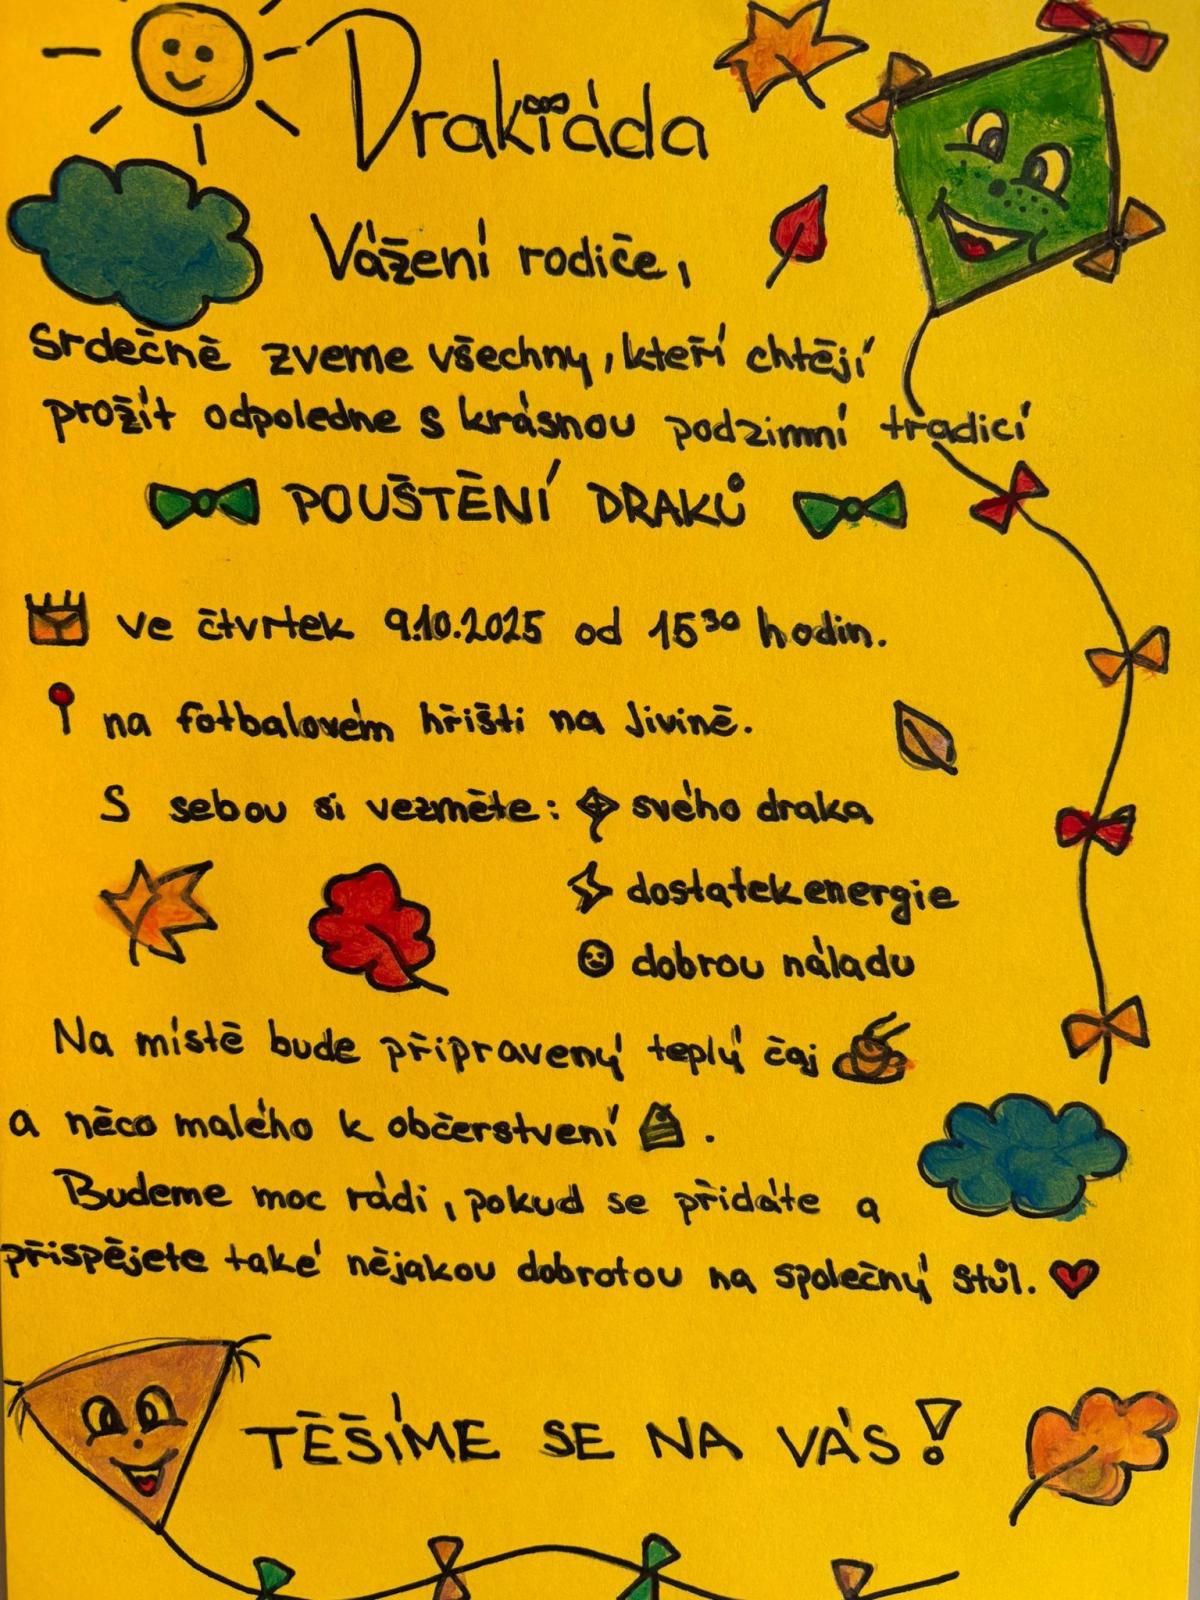 Drakiáda
Vážení rodiče,
srdečně zveme všechny, kteří chtějí
prožít odpoledne s krásnou podzimní tradicí
POUŠTĚNÍ DRAKŮ
ve čtvrtek 9.10.2025 od 15³⁰ hodin.
na fotbalovém hřišti na Jivině.
S sebou si vezměte: svého draka
dostatek energie
dobrou náladu
Na místě bude připravený teplý čaj
a něco malého k občerstvení .
Budeme moc rádi, pokud se přidáte a
přispějete také nějakou dobrotou na společný stůl.
TĚŠÍME SE NA VÁS!